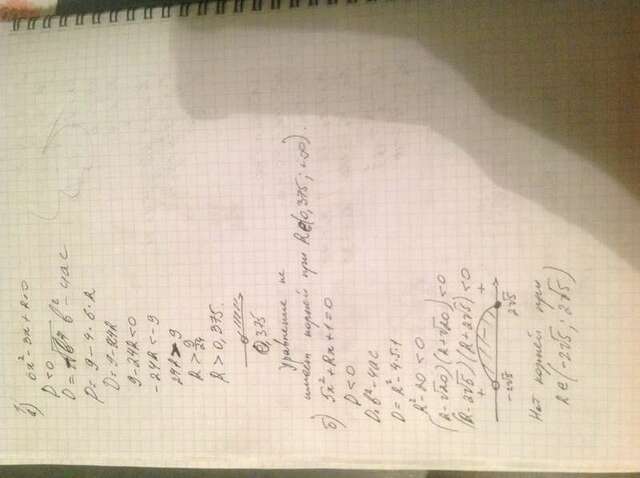 а) 6x² - 3x + R = 0
D < 0
D = b² - 4ac
D = 9 - 4 · 6 · R
D = 9 - 24R
9 - 24R < 0
- 24R < - 9
24R > 9
R > 9/24
R > 0,375.
0,375
Уравнение не
имеет корней при R∈(0,375; +∞).
б) 5x² + Rx + 1 = 0
D < 0
D = b² - 4ac
D = R² - 4·5·1
R² - 20 < 0
(R - √20)(R + √20) < 0
(R - 2√5)(R + 2√5) < 0
+ - +
-2√5 2√5
Нет корней при
R∈(-2√5; 2√5)